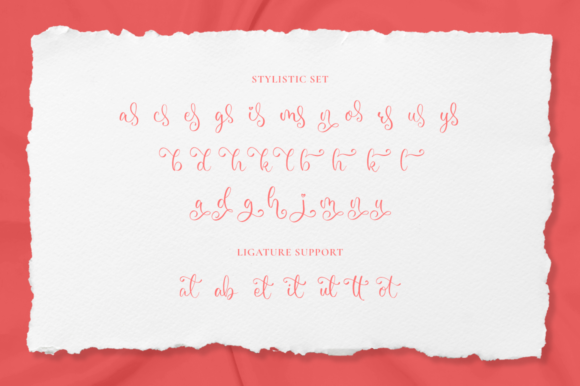 STYLISTIC SET
as cs es gs is ms n os rs us ys
b d h k l b h k l
a d g h j m n u
LIGATURE SUPPORT
at ab et it ut tt ot